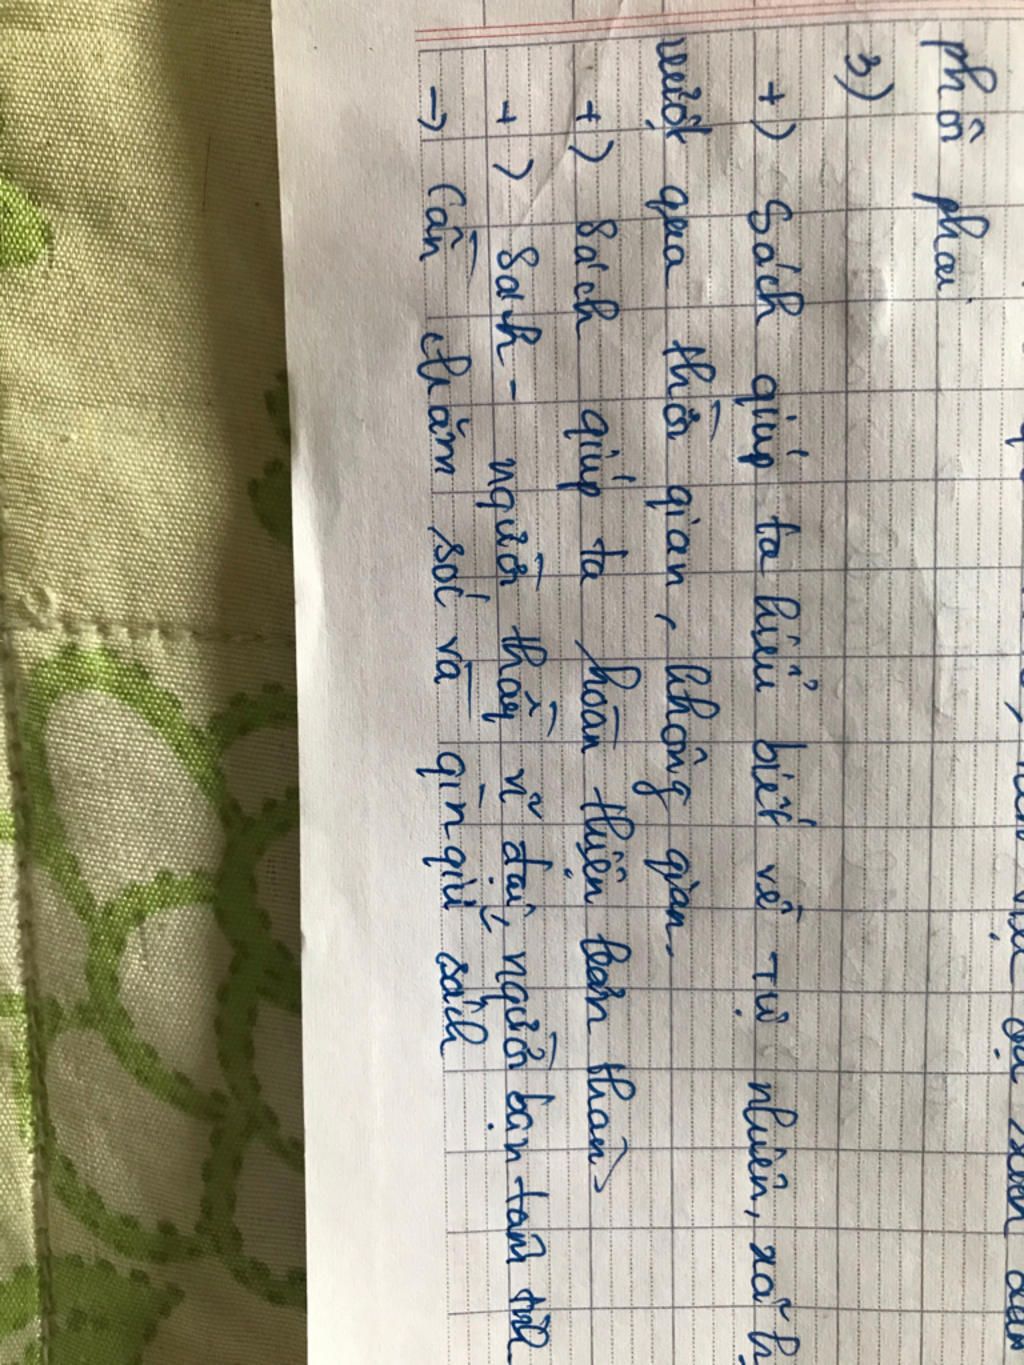 phôi phai
3)
+) Sách giúp ta hiểu biết về tự nhiên, xã
vượt qua thời gian, không gian.
+) Sách giúp ta hoàn thiện bản thân
+) Sách - người thầy vĩ đại, người bạn tâm tình
→ Cần chăm sóc và gìn giữ sách